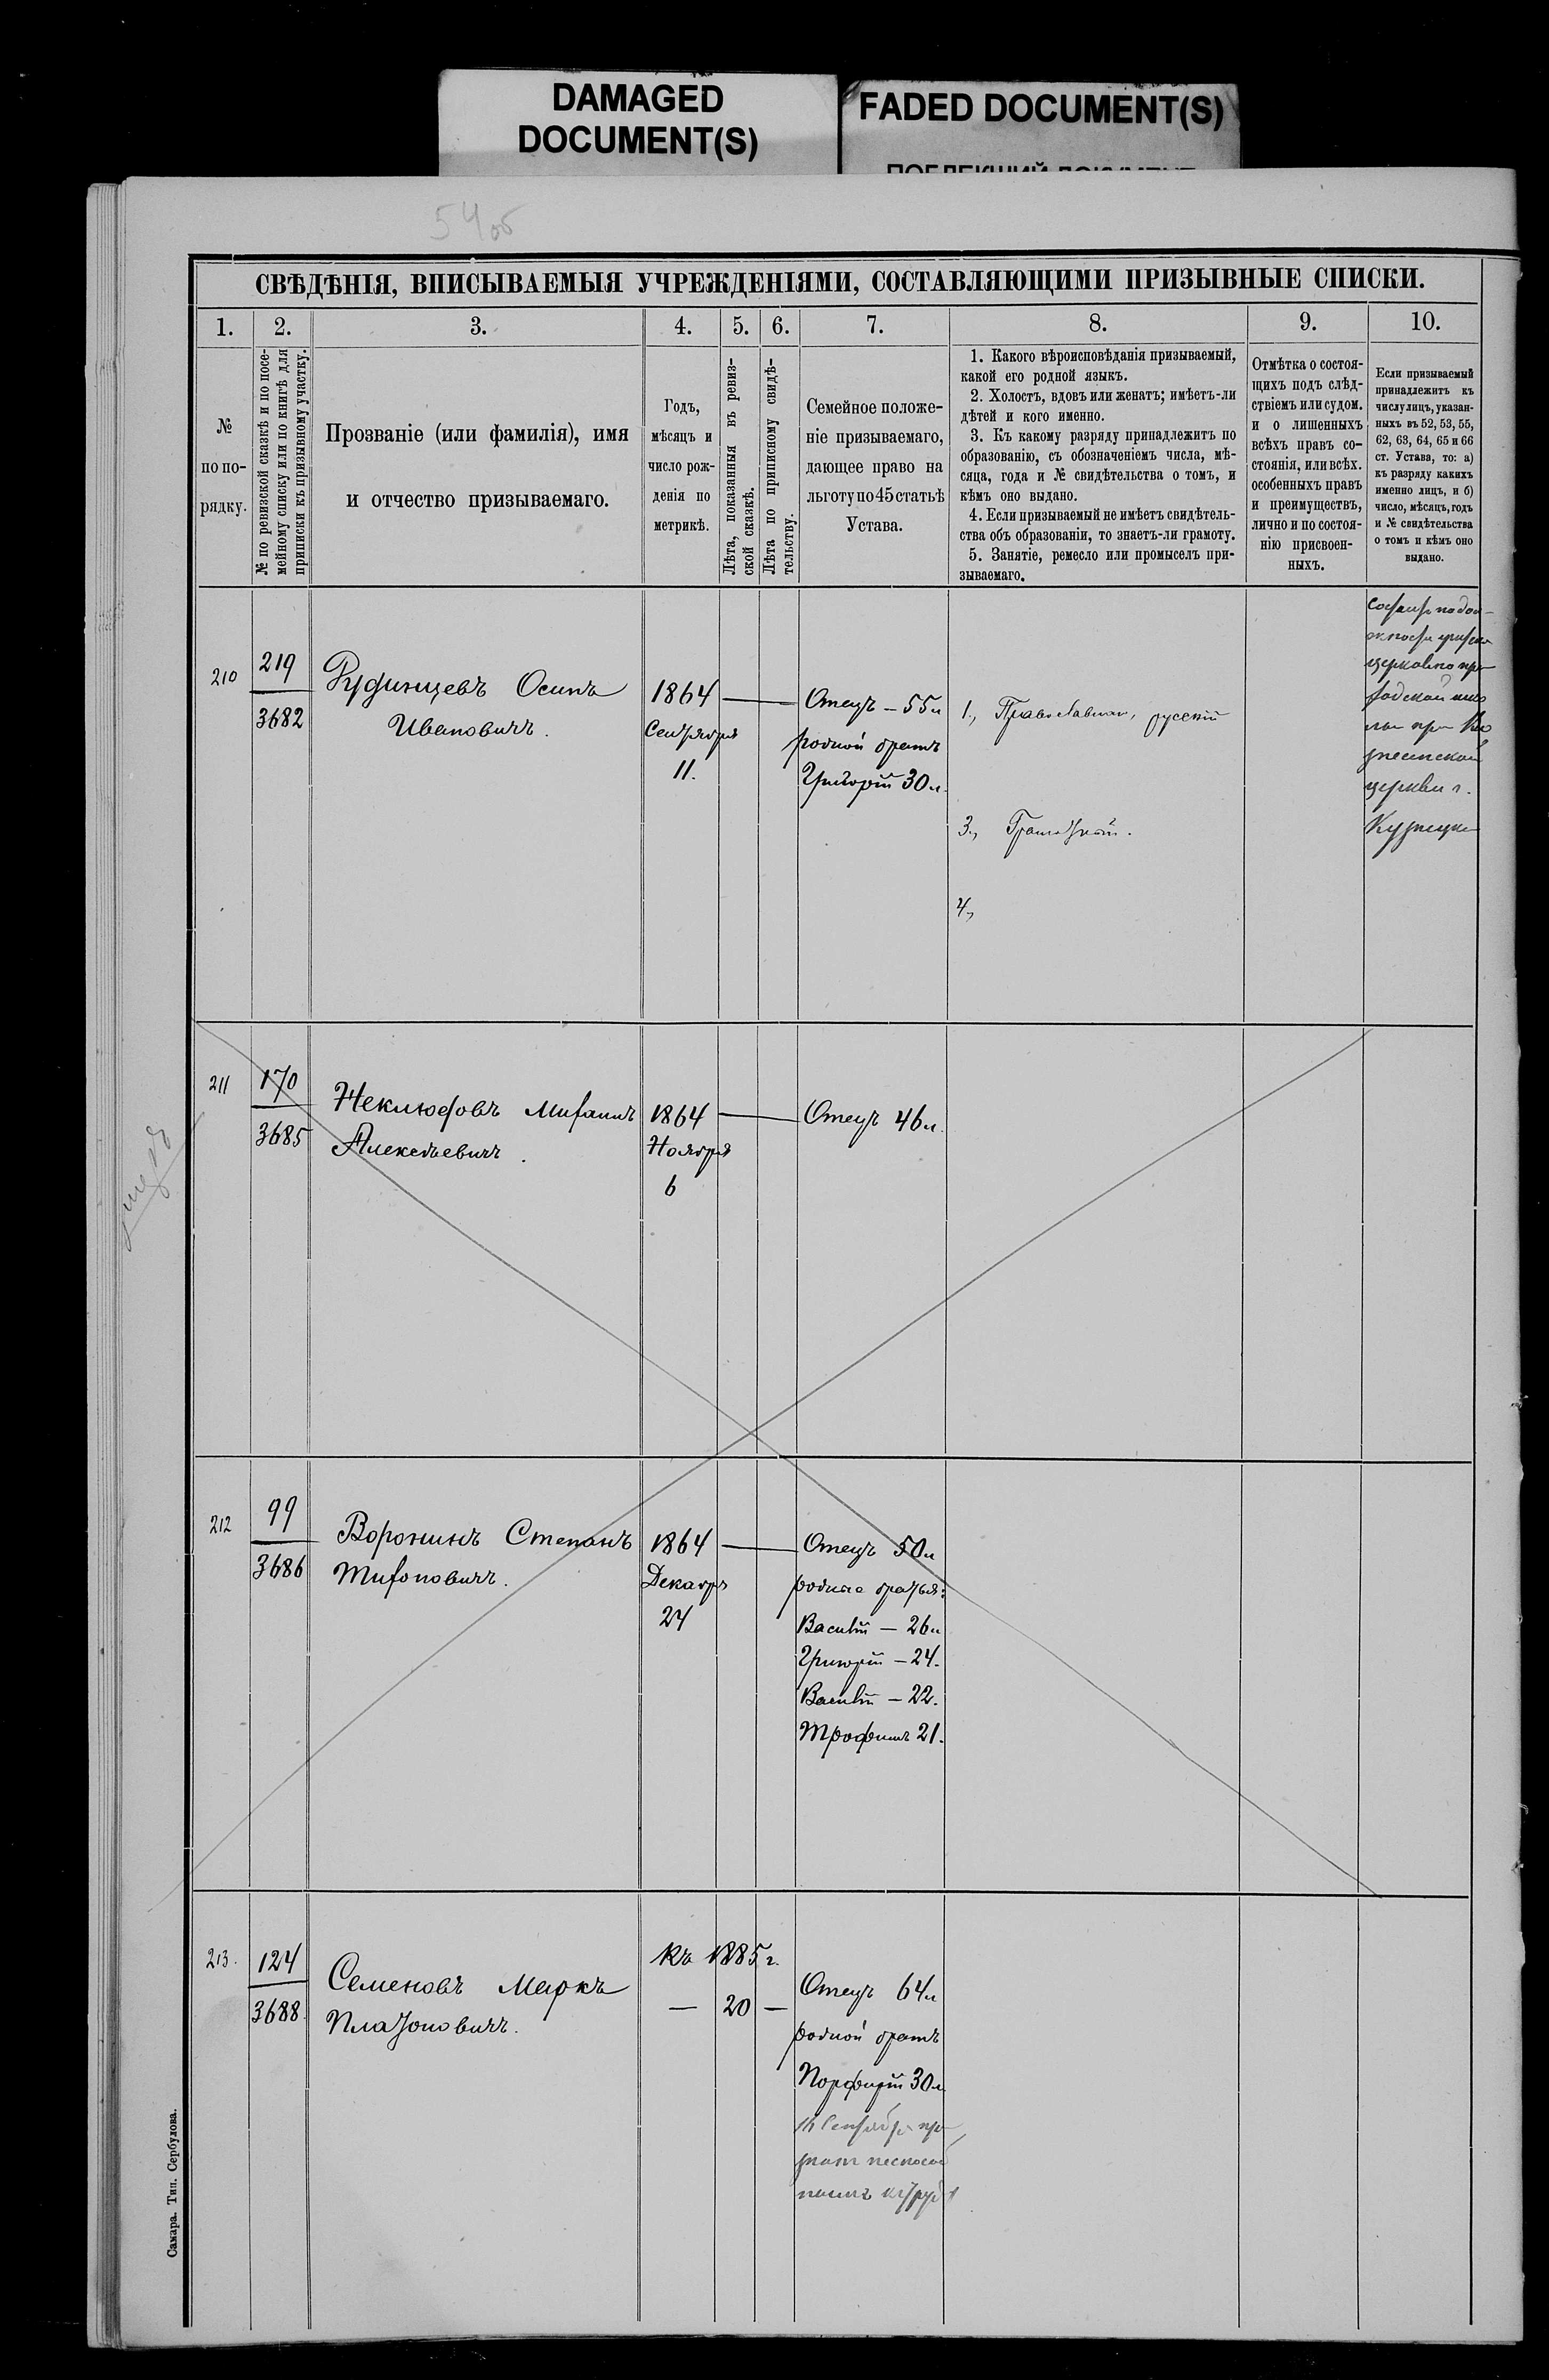 DAMAGED
DOCUMENT(S)
FADED DOCUMENT(S)
54об
СВѢДѢНІЯ, ВПИСЫВАЕМЫЯ УЧРЕЖДЕНІЯМИ, СОСТАВЛЯЮЩИМИ ПРИЗЫВНЫЕ СПИСКИ.
1.
2.
3.
4.
5.
6.
7.
8.
9.
10.
№
по по-
рядку.
№ по ревизской сказкѣ и по посе-
мейному списку или по книгѣ для
приписки къ призывному участку.
Прозваніе (или фамилія), имя
и отчество призываемаго.
Годъ,
мѣсяцъ и
число рож-
денія по
метрикѣ.
Лѣта, показанныя въ ревиз-
ской сказкѣ.
Лѣта по приписному свидѣ-
тельству.
Семейное положе-
ніе призываемаго,
дающее право на
льготу по 45 статьѣ
Устава.
1. Какого вѣроисповѣданія призываемый,
какой его родной языкъ.
2. Холостъ, вдовъ или женатъ; имѣетъ-ли
дѣтей и кого именно.
3. Къ какому разряду принадлежитъ по
образованію, съ обозначеніемъ числа, мѣ-
сяца, года и № свидѣтельства о томъ, и
кѣмъ оно выдано.
4. Если призываемый не имѣетъ свидѣтель-
ства объ образованіи, то знаетъ-ли грамоту.
5. Занятіе, ремесло или промыселъ при-
зываемаго.
Отмѣтка о состоя-
щихъ подъ слѣд-
ствіемъ или судом.
и о лишенныхъ
всѣхъ правъ со-
стоянія, или всѣх.
особенныхъ правъ
и преимуществъ,
лично и по состоя-
нію присвоен-
ныхъ.
Если призываемый
принадлежитъ къ
числу лицъ, указан-
ныхъ въ 52, 53, 55,
62, 63, 64, 65 и 66
ст. Устава, то: а)
къ разряду какихъ
именно лицъ, и б)
число, мѣсяцъ, годъ
и № свидѣтельства
о томъ и кѣмъ оно
выдано.
210
219
3682
Рудинцевъ Осипъ
Ивановичъ.
1864
Сентября
11.
Отецъ – 55 л
родной братъ
Григорій 30 л.
1, Православнаг, русскій
3, Грамотный.
4,
церкви г.
Кузнецка
211
170
3685
Неклюдовъ Митрофанъ
Алексѣевичъ.
1864
Ноября
6
Отецъ 46 л.
212
99
3686
Воронинъ Степанъ
Тифоновичъ.
1864
Декабря
24
Отецъ 50 л
родные братья:
Василій – 26 л
Григорій – 24.
Василій – 22.
Трофимъ 21.
213.
124
3688.
Семеновъ Маркъ
Платоновичъ.
къ 1885 г.
— 20 —
Отецъ 64 л
родной братъ
Порфирій 30 л
Самара. Тип. Сербулова.